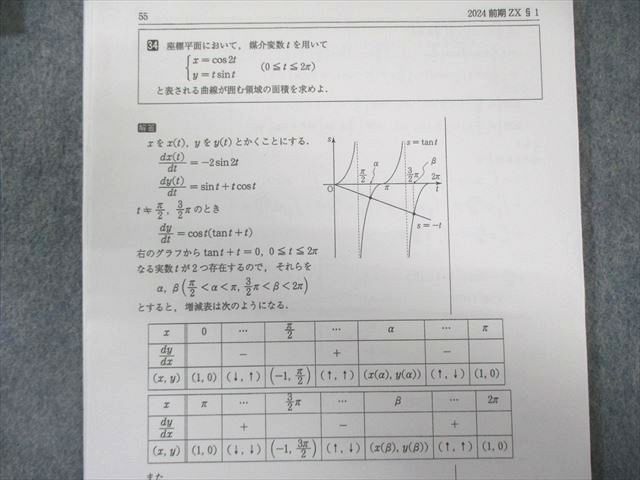 55
2024 前期 ZX § 1
34 座標平面において, 媒介変数 t を用いて
x = cos2t
y = t sin t
(0 ≦ t ≦ 2π)
と表される曲線が囲む領域の面積を求めよ.
解答
x を x(t), y を y(t) とかくことにする.
dx(t)/dt = −2 sin 2t
dy(t)/dt = sin t + t cos t
t ≠ π/2, 3/2 π のとき
dy/dt = cos t (tan t + t)
右のグラフから tan t + t = 0, 0 ≦ t ≦ 2π
なる実数 t が 2 つ存在するので, それらを
α, β (π/2 < α < π, 3/2 π < β < 2π)
とすると, 増減表は次のようになる.
s
s = tan t
π/2
α
3/2 π
β
O
π
2π
t
s = −t
x 0 … π/2 … α … π
dy/dx − + −
(x, y) (1, 0) (↓, ↑) (−1, π/2) (↑, ↑) (x(α), y(α)) (↑, ↓) (1, 0)
x π … 3/2 π … β … 2π
dy/dx + − +
(x, y) (1, 0) (↓, ↓) (−1, 3π/2) (↑, ↓) (x(β), y(β)) (↑, ↑) (1, 0)
また